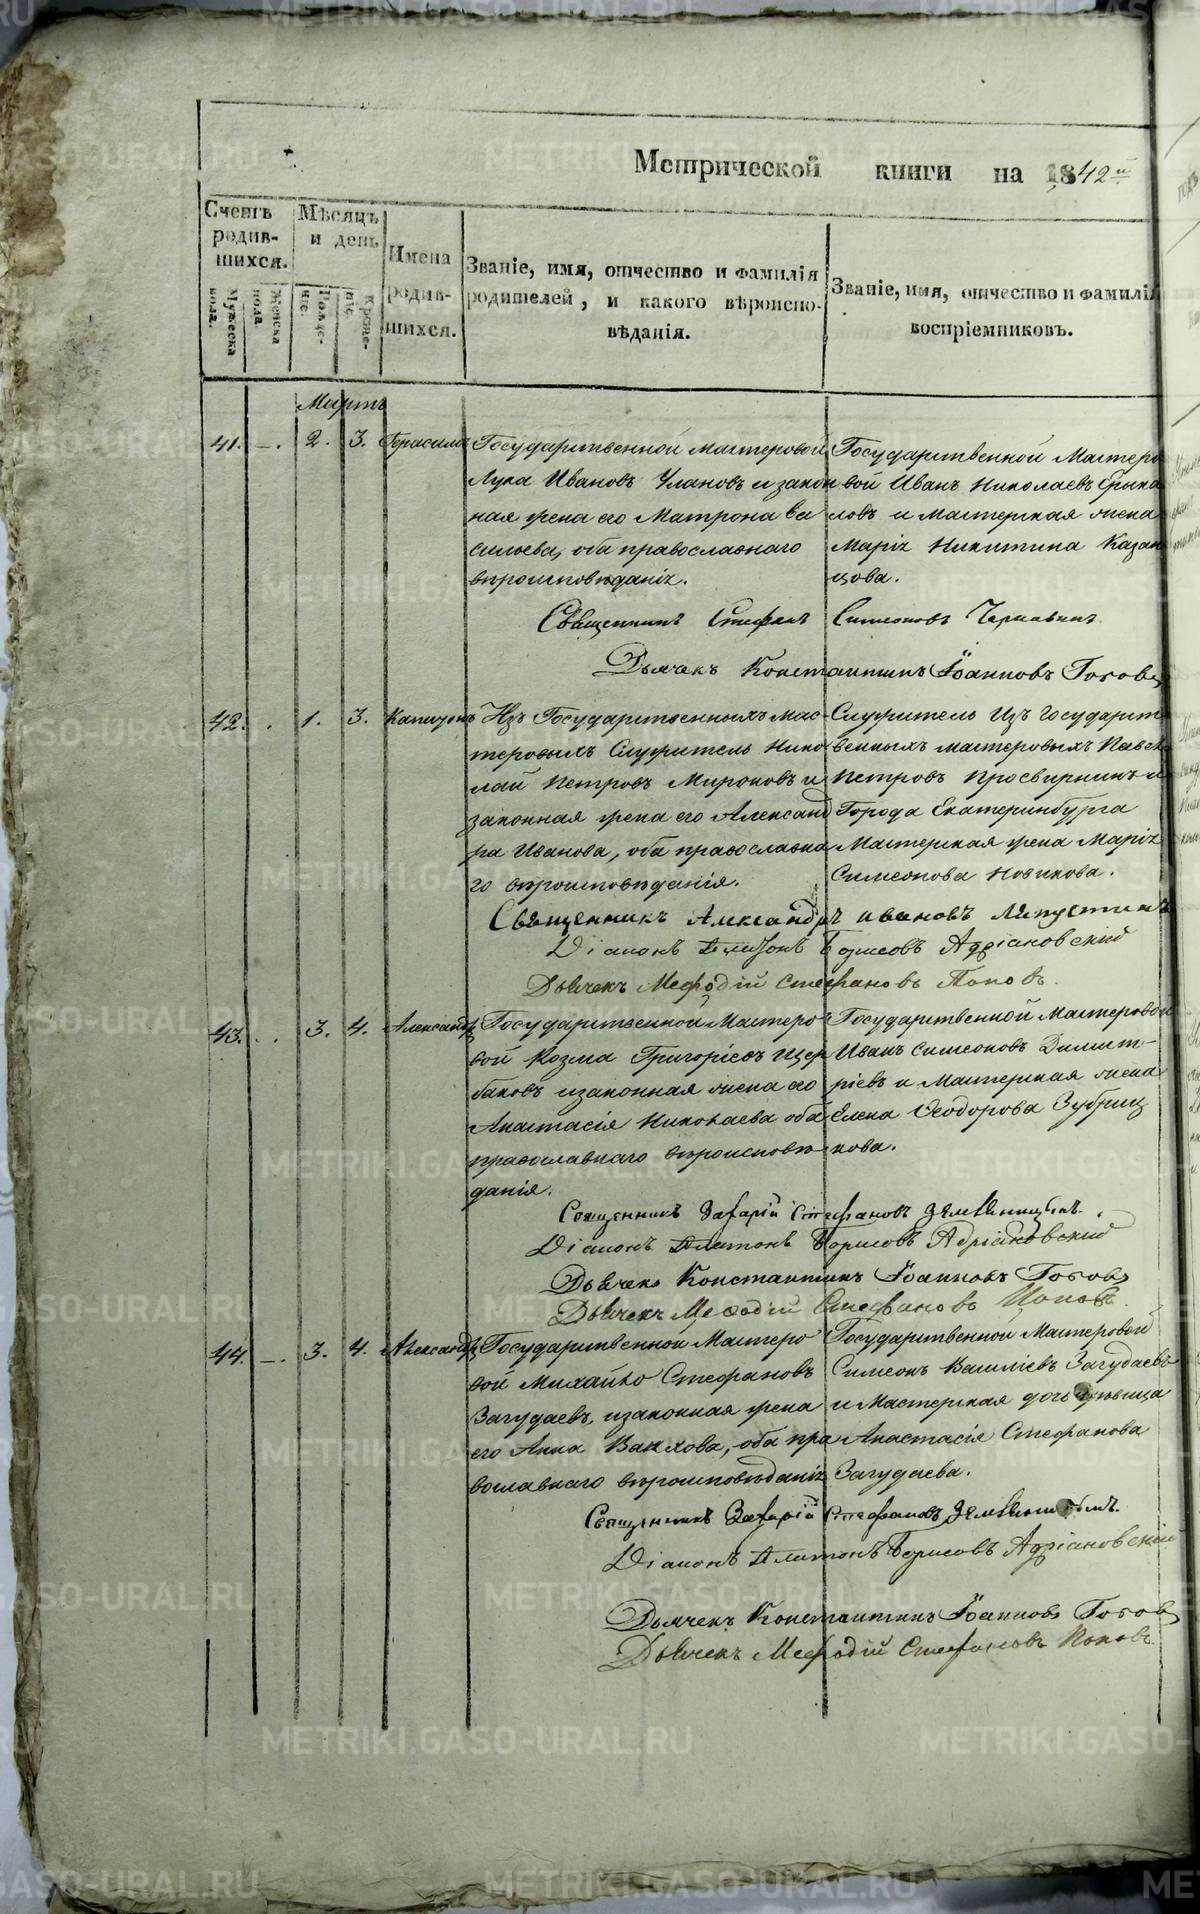 Метрической книги на 1842й
Счетъ родившихся.
Мѣсяцъ и день
Имена родившихся.
Званіе, имя, отчество и фамилія родителей, и какого вѣроисповѣданія.
Званіе, имя, отчество и фамилія воспріемниковъ.
Мужеска пола.
Женска пола.
Рожденіе.
Крещеніе.
Мартъ
41. —. 2. 3. Герасимъ
Государственной мастеровой
Лука Ивановъ Улановъ и закон
ная жена его Матрона Ва
сильева, оба православнаго
вѣроисповѣданія.
Государственной Мастеро
вой Иванъ Николаевъ
ловъ и Мастерская жена
Марія Никитина Казан
цова.
Священникъ Стефанъ Симеоновъ
Дьячекъ Константинъ Іоанновъ
42. . 1. 3. Капитонъ
Изъ Государственныхъ мас-
теровыхъ Служитель Нико
лай Петровъ Мироновъ и
законная жена его Александ
ра Иванова, оба православна
го вѣроисповѣданія.
Служитель Изъ Государст
венныхъ мастеровыхъ Павелъ
Петровъ Просвирнинъ и
Города Екатеринбурга
Мастерская жена Марія
Симеонова Новикова.
Священникъ Александръ Ивановъ Ляпустинъ
Діаконъ Платонъ Борисовъ Адріановскій
Дьячекъ Мефодій Стефановъ Поповъ.
43. . 3. 4. Александръ
Государственной Мастеро
вой Козма Григоріевъ Щер
баковъ и законная жена его
Анастасія Николаева оба
православнаго вѣроисповѣ
данія.
Государственной Мастеровой
Иванъ Симеоновъ Димит-
ріевъ и Мастерская жена
Елена Ѳеодорова Зубриц
кова.
Священникъ Захарій Стефановъ
Діаконъ Платонъ Борисовъ Адріановскій
Дьячекъ Константинъ Іоанновъ
Дьячекъ Мефодій Стефановъ Поповъ.
44. —. 3. 4. Александръ
Государственной Мастеро
вой Михайло Стефановъ
Загудаевъ, и законная жена
его Анна Вакхова, оба пра
вославнаго вѣроисповѣданія
Государственной Мастеровой
Симеонъ Василіевъ Загудаевъ
и Мастерская дочь дѣвица
Анастасія Стефанова
Загудаева.
Священникъ Захарій Стефановъ
Діаконъ Платонъ Борисовъ Адріановскій
Дьячекъ Константинъ Іоанновъ
Дьячекъ Мефодій Стефановъ Поповъ.
METRIKI.GASO-URAL.RU